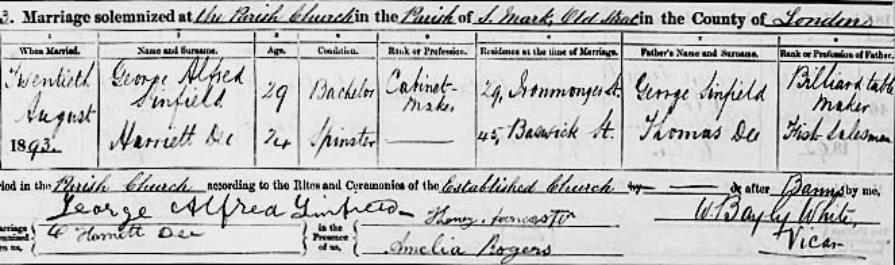 3. Marriage solemnized at the Parish Church in the Parish of S. Mark, Old Street in the County of London
When Married. Name and Surname. Age. Condition. Rank or Profession. Residence at the time of Marriage. Father's Name and Surname. Rank or Profession of Father.
Twentieth George Alfred Sinfield 29 Bachelor Cabinet-Maker 29, Ironmonger St. George Sinfield Billiard table Maker
August
1893. Harriett Dee 24 Spinster 45, Baswick St. Thomas Dee Fish Salesman
ried in the Parish Church according to the Rites and Ceremonies of the Established Church by or after Banns by me,
George Alfred Sinfield W. Bayly White,
arriage Harriett Dee in the Presence of us, Vicar
Amelia Rogers